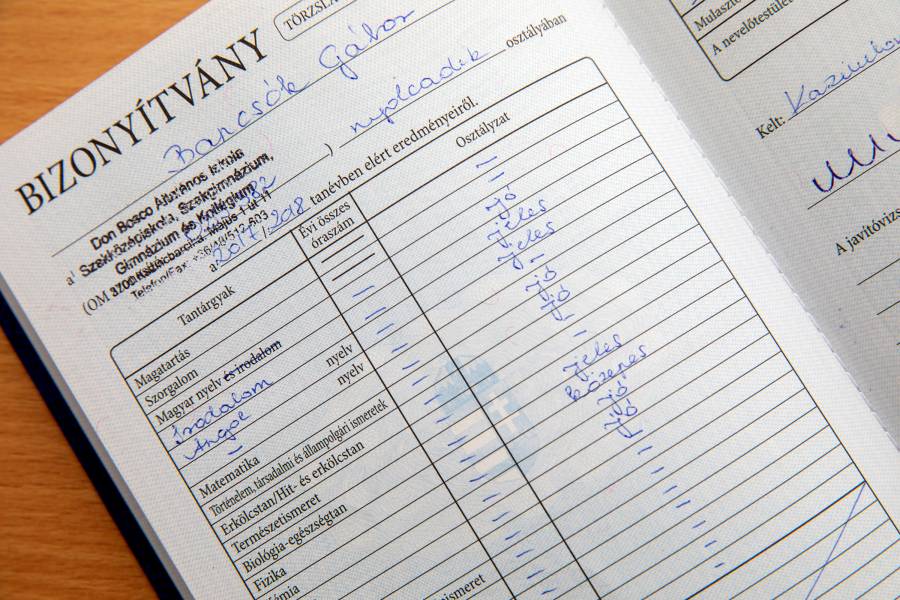 TÖRZSLA
BIZONYÍTVÁNY
Bancsók Gábor
nyolcadik osztályában
Don Bosco Általános Iskola
Szakközépiskola, Szakgimnázium,
Gimnázium és Kollégium
3700 Kazincbarcika, Május 1 út 11
Telefon/Fax: +36/48/512-803
a
(OM )
a 2017/2018 tanévben elért eredményeiről.
Tantárgyak
Évi összes óraszám
Osztályzat
Magatartás — —
Szorgalom — —
Magyar nyelv és irodalom — jó
Irodalom nyelv — jeles
Angol nyelv — jeles
— — —
Matematika — jó
Történelem, társadalmi és állampolgári ismeretek — jó
Erkölcstan/Hit- és erkölcstan —
Természetismeret — —
Biológia-egészségtan — jeles
Fizika — közepes
émia — jó
jó
ismeret
Mulaszto
A nevelőtestület
Kelt:
A javítóvizs